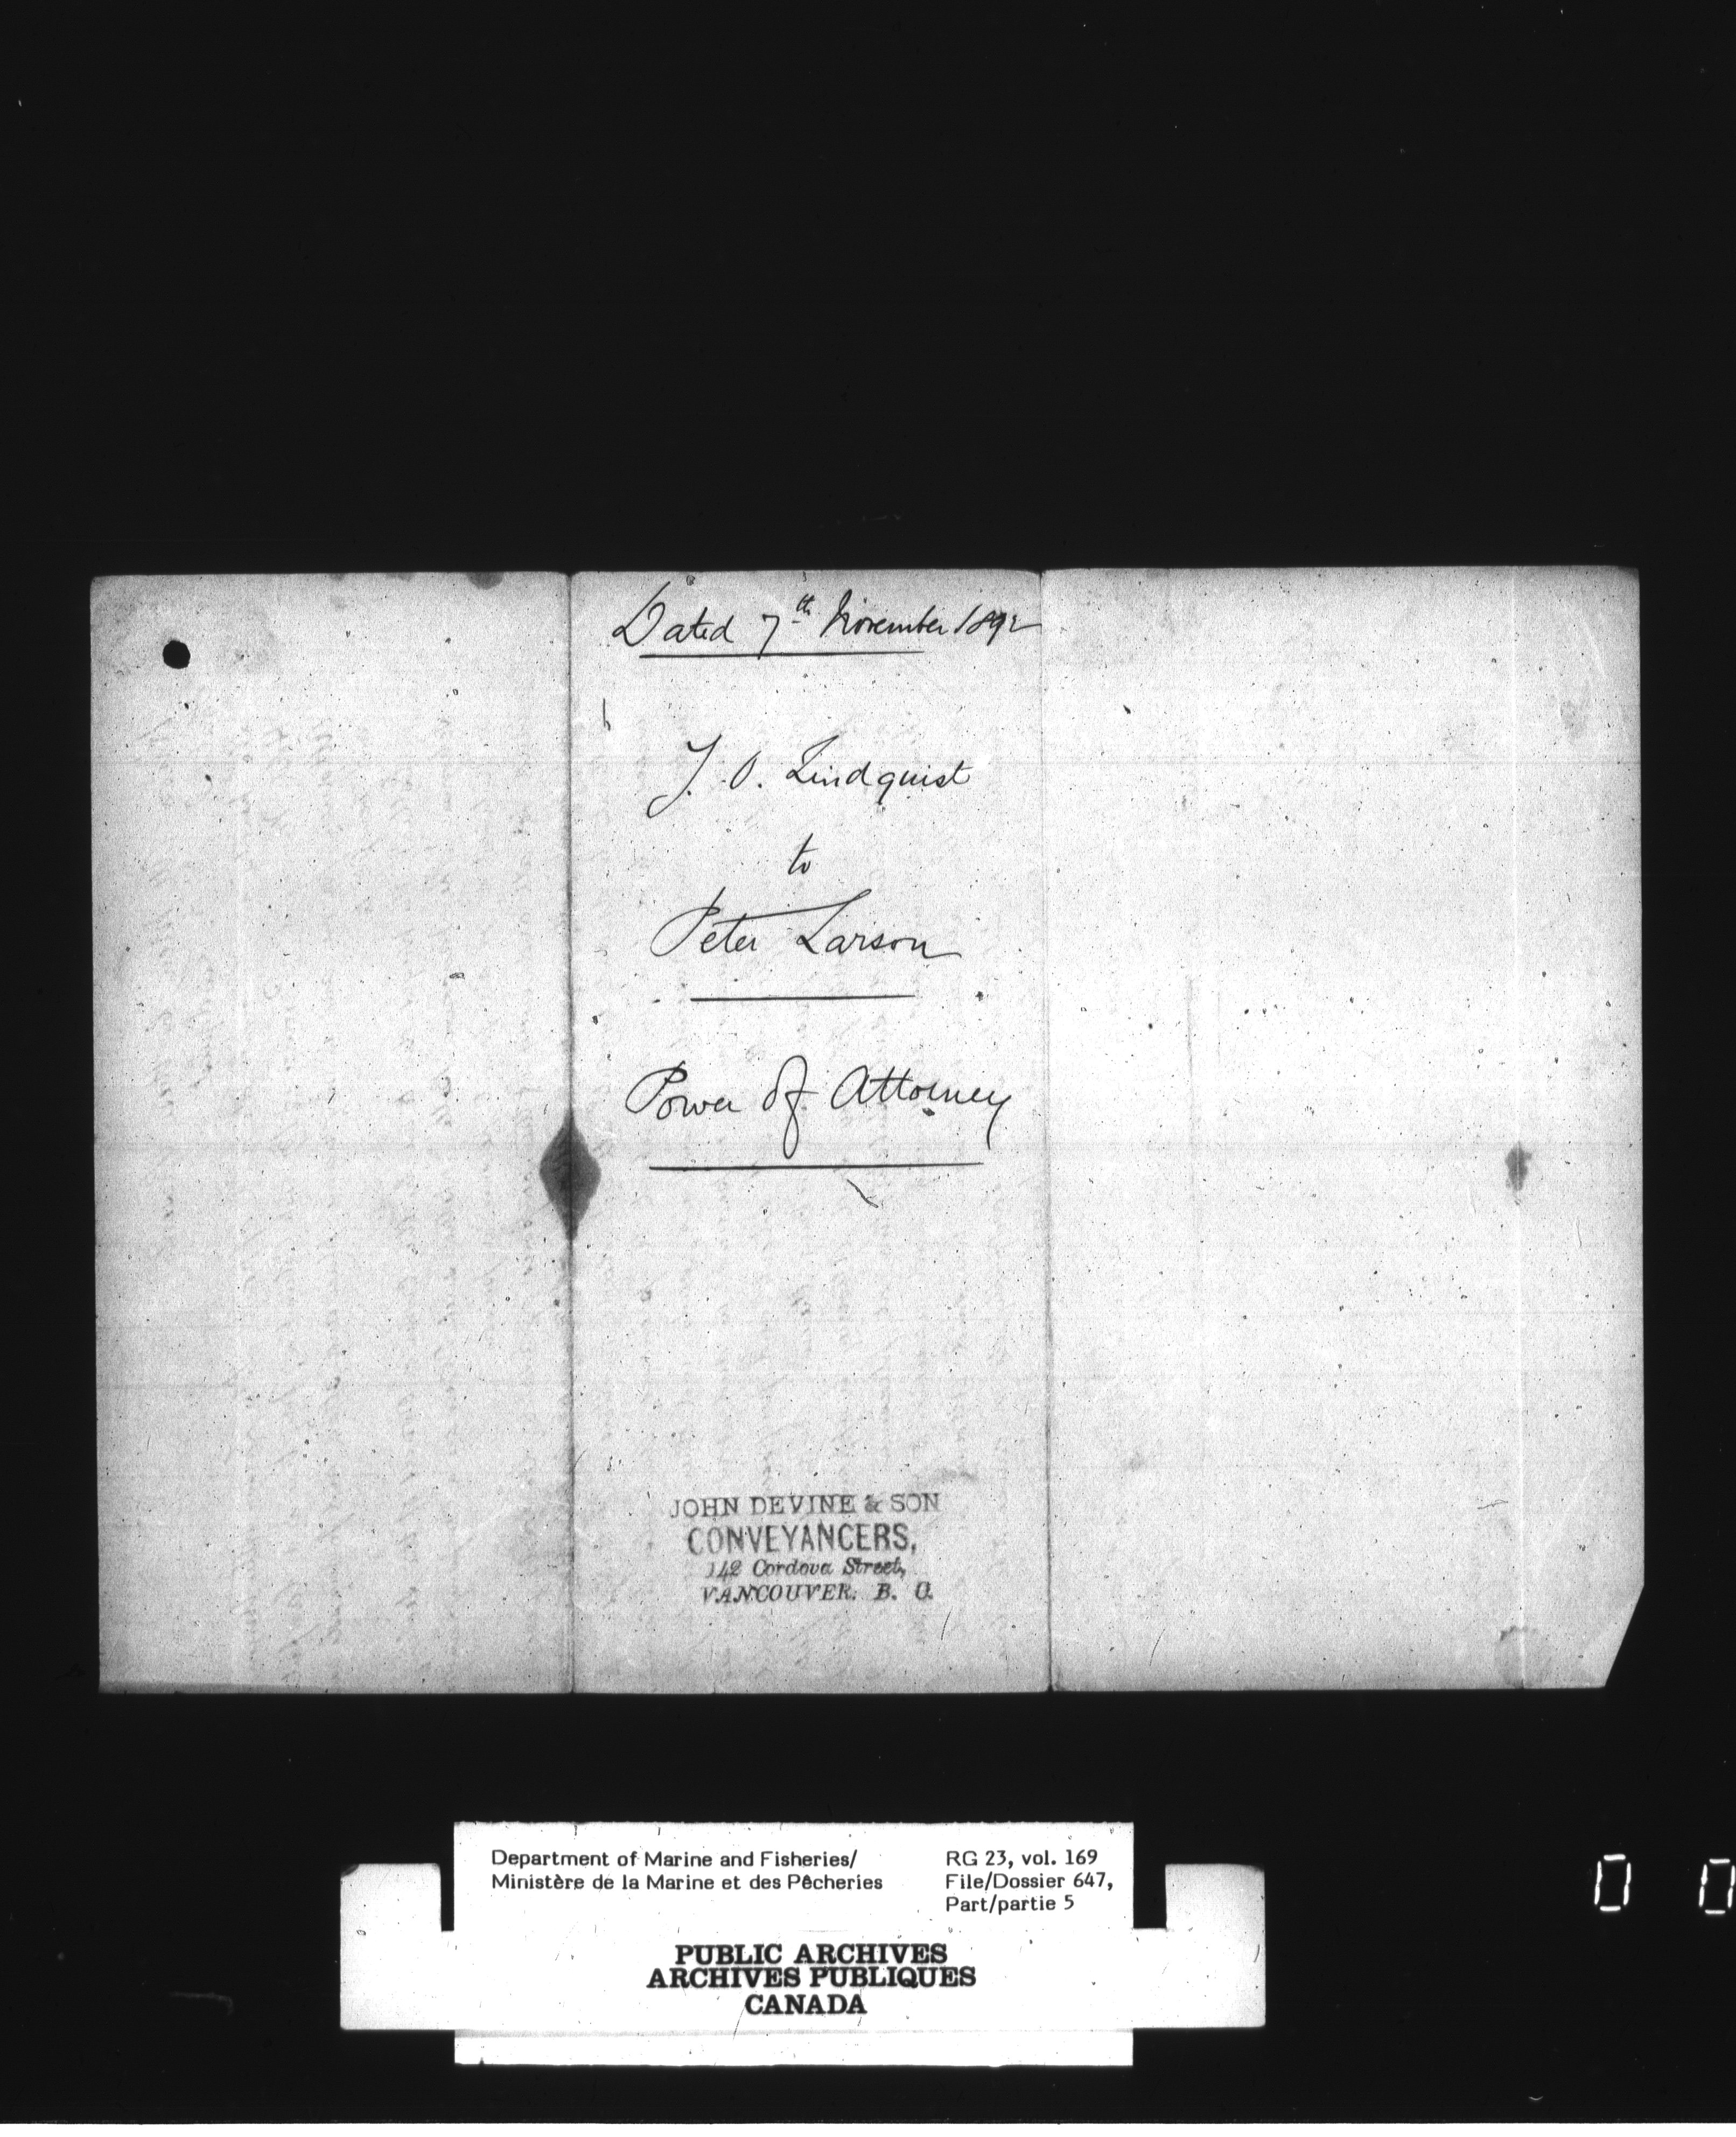 Dated 7th November 1892
J. O. Lindquist
to
Peter Larson
Power of Attorney
JOHN DEVINE & SON
CONVEYANCERS,
142 Cordova Street,
VANCOUVER. B. C.
Department of Marine and Fisheries/
Ministère de la Marine et des Pêcheries
RG 23, vol. 169
File/Dossier 647,
Part/partie 5
PUBLIC ARCHIVES
ARCHIVES PUBLIQUES
CANADA
0 0